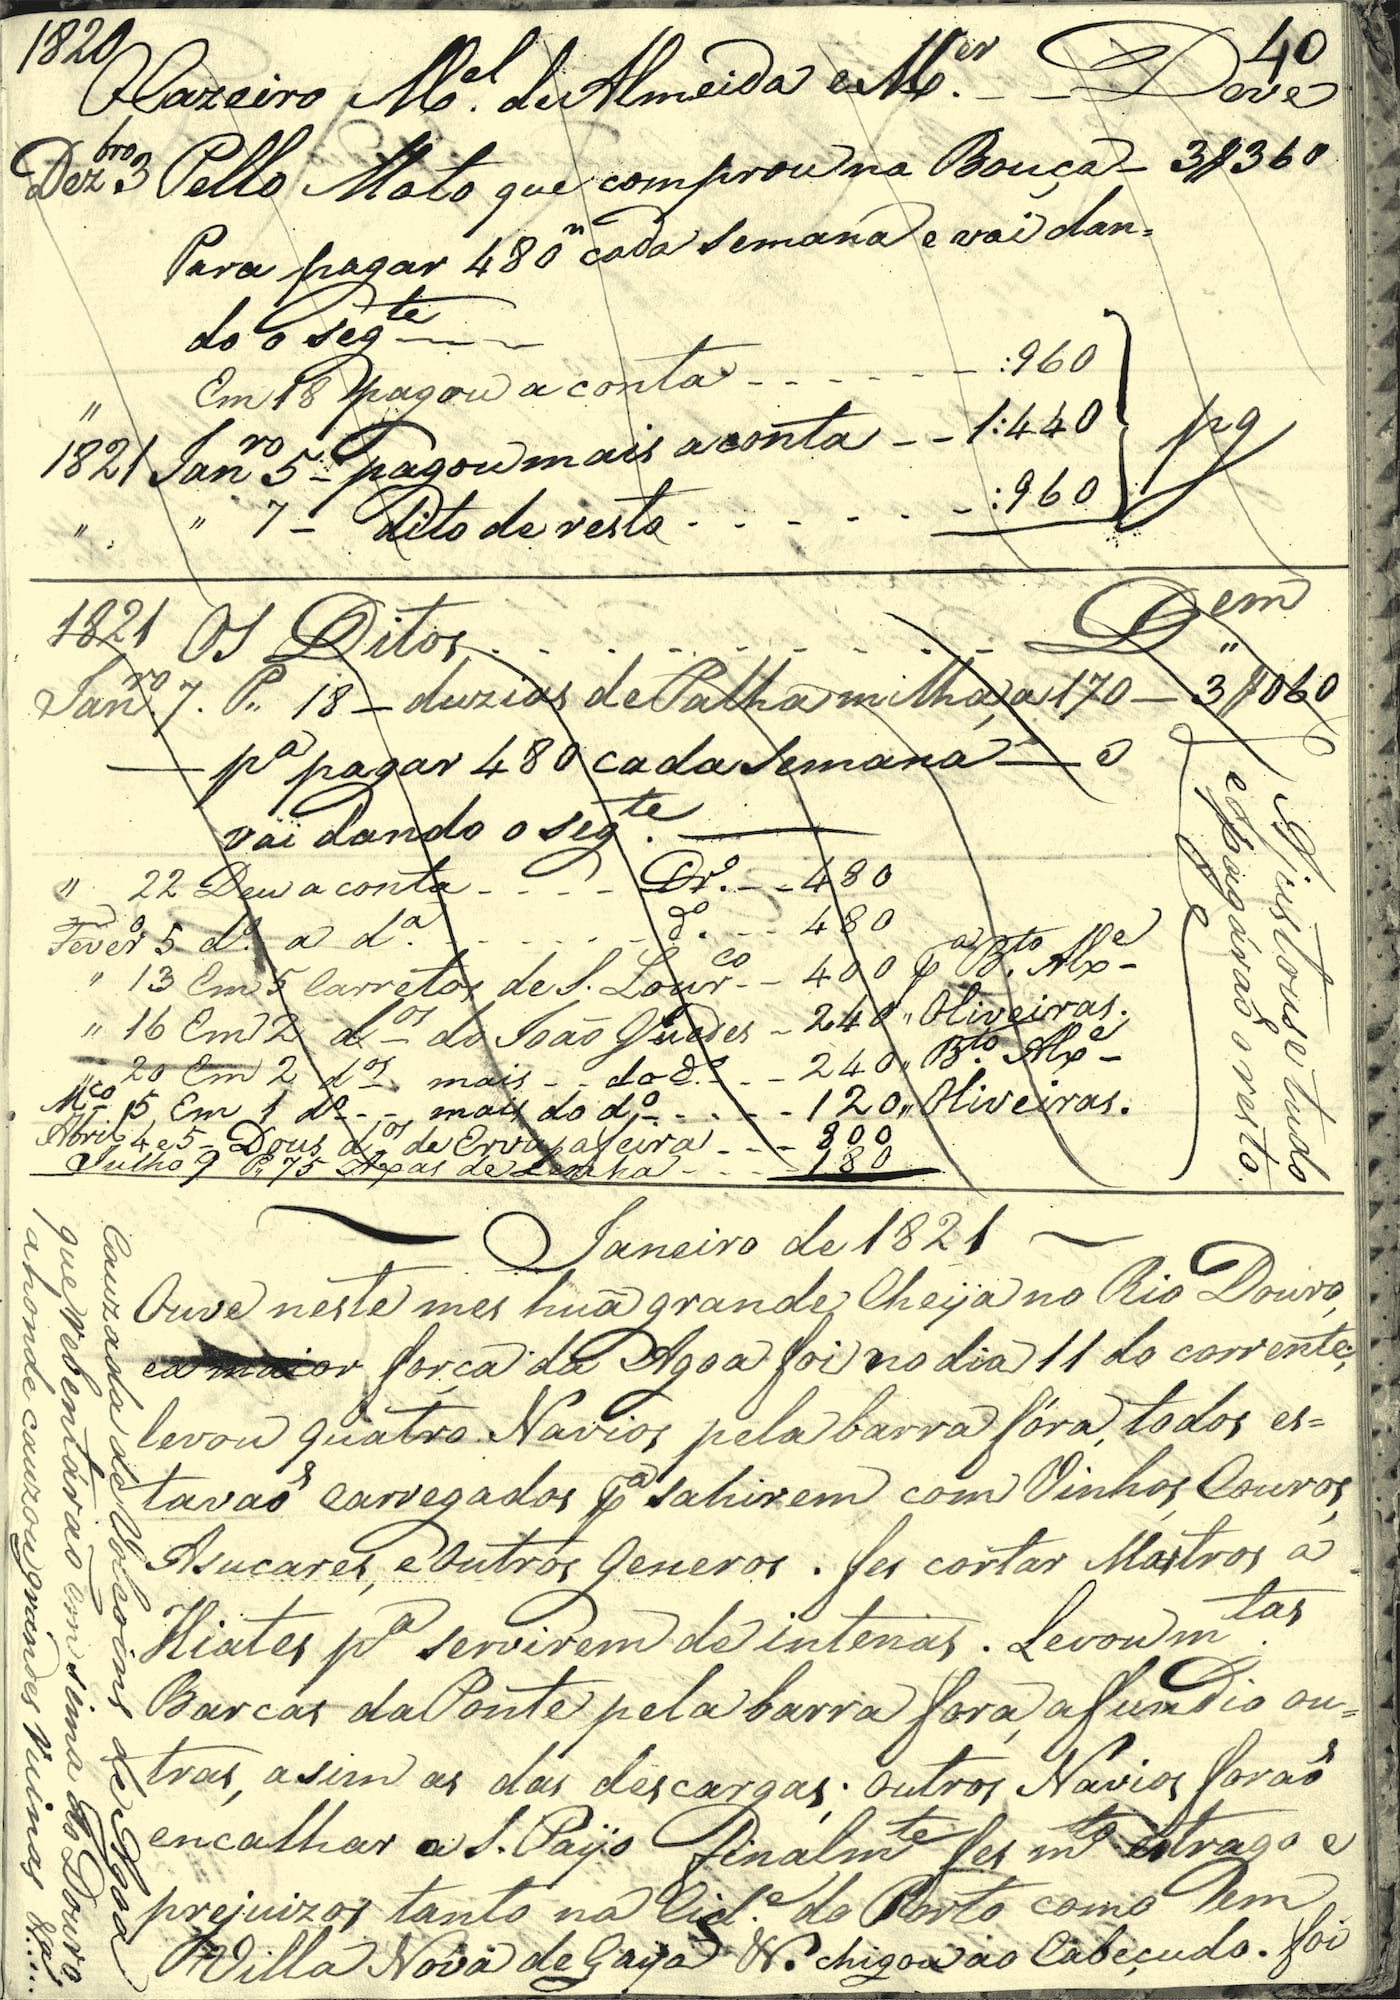 1820
40
Cazeiro Mel. de Almeida e Mer. - - Deve
Dezbro 3 Pello Mato que comprou na Bouça - 3$360
Para pagar 480 cada semana e vai dan=
do o segte
" Em 18 pagou a conta - - - - - - :960
1821 Janro 5 - pagou mais a conta - - 1:440
" " 7 - dito de resto - - - - - - :960
pg
1821 Os Ditos - - - - - - - - Dem
Janro. 7. P. 18 - duzias de Palha milha, a 170 - 3$060
pa pagar 480 cada semana - e
vai dando o segte.
" 22 Deu a conta - - - - Dro. - - 480
Fevero 5 do. a da. - - - - - - do. - - 480
" 13 Em 5 Carretos de S. Lourco - - 400 pa Bto. Alxe -
" 16 Em 2 dos do João Guedes - 240 " Oliveiras.
" 20 Em 2 dos. mais - - do do. - - 240 " Bto Alxe -
Mço 15 Em 1 do - - mais do do - - - - 120 " Oliveiras.
Abril 4 e 5 - Dous dos de Erva pa feira - - - 300
Julho 9 P. 75 Axas de Lenha - - - - 180
Ajustouse tudo
e Pagárão o resto.
Janeiro de 1821
Ouve neste mes huã grande Cheija no Rio Douro,
ea maior força da Agoa foi no dia 11 do corrente,
levou quatro Navios pela barra fóra, todos es=
tavaõ carregados pa sahirem com Vinhos, Couros,
Asucares, e outros Generos. fes cortar Mastros a
Hiates pa servirem de intenas. Levou mtas.
Barcas da Ponte pela barra fora, afundio ou=
tras, asim as das descargas; outros Navios foraõ
encalhar a S. Paijo Finalmte fes mto estrago e
prejuizos tanto na Cide. do Porto como em
Villa Nova de Gaija N. chigou ao Cabeçudo. foi
Cauzada de Volcoins de Agoa
que rebentáraõ em sima do Douro
ahonde cauzou grandes ruinas &a....